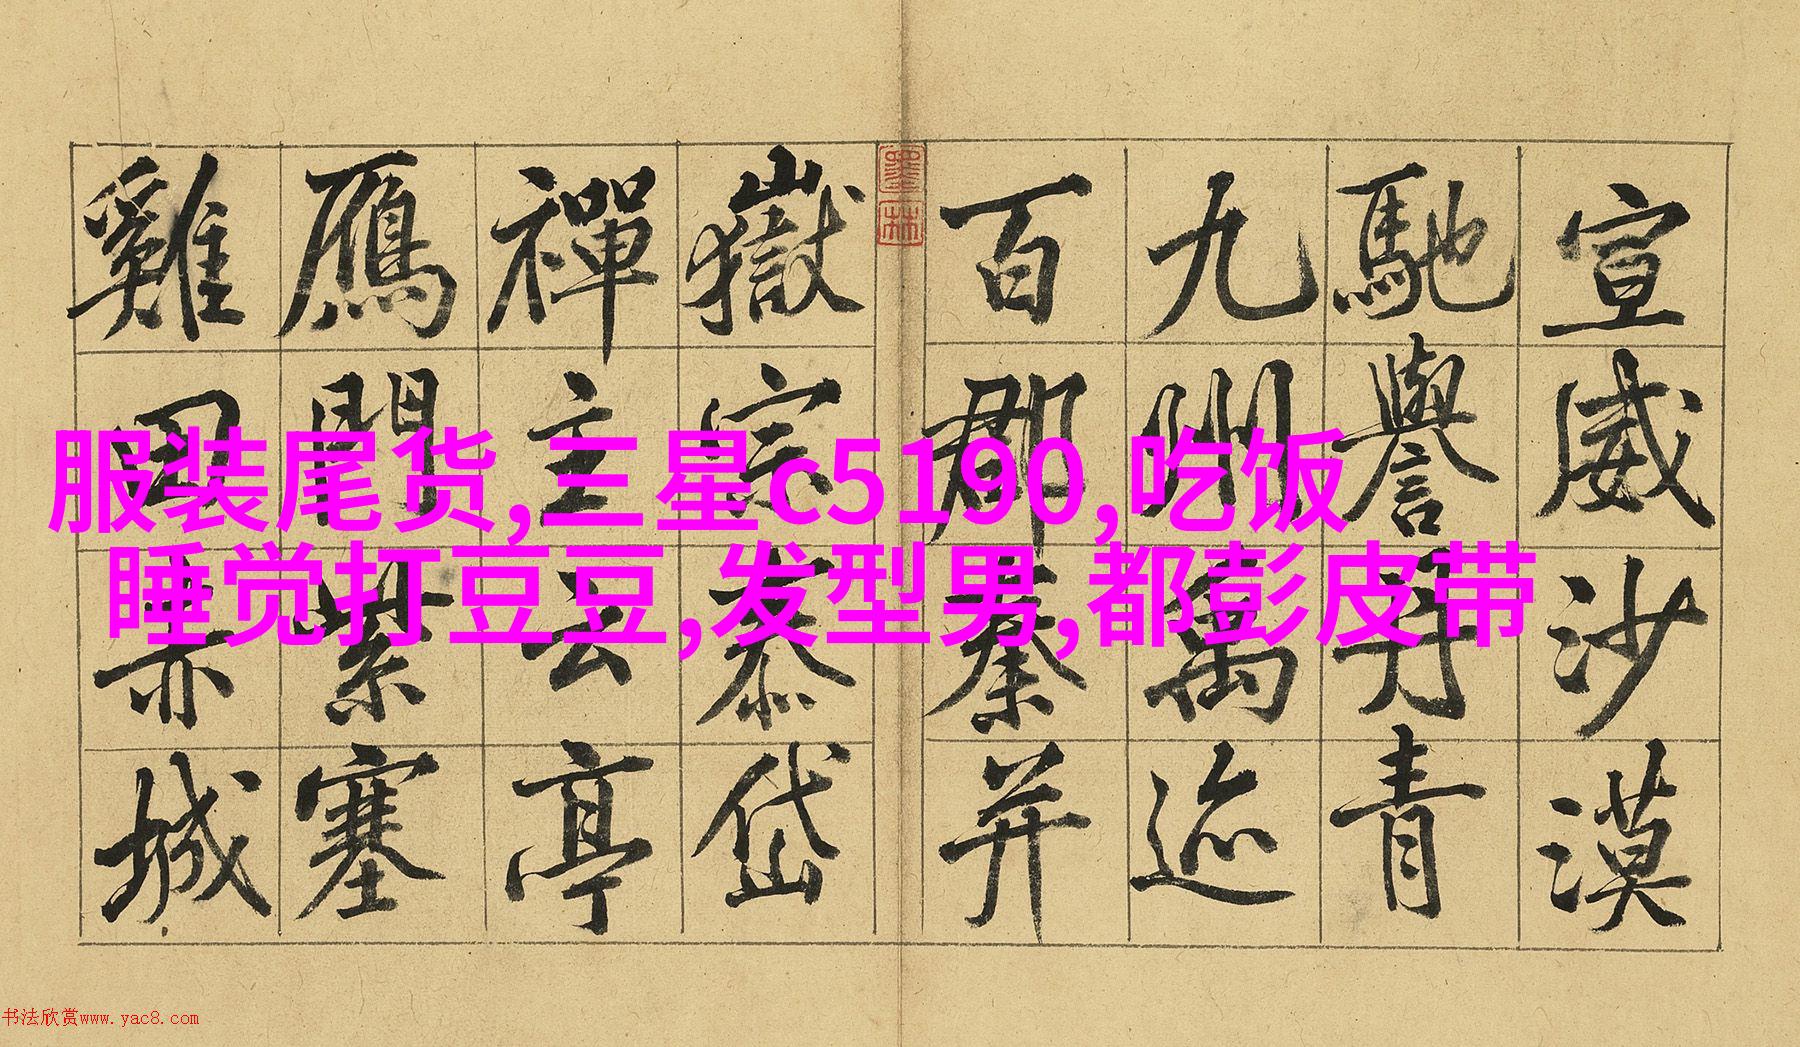 宣威沙漠
馳譽丹青
九州禹迹
百郡秦并
墨林
嶽宗泰岱
禪主云亭
鴈門紫塞
雞田赤城
服装尾货,三星c5190,吃饭
睡觉打豆豆,发型男,都彭皮带
书法欣赏www.yac8.com